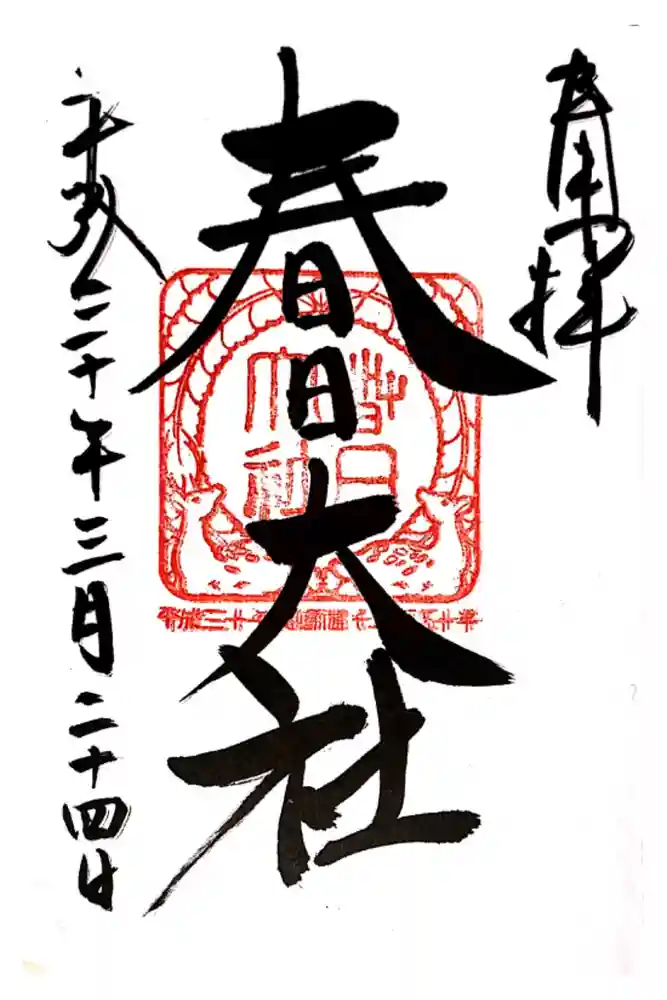 奉拝
春日大社
春日
大社
平成二十年三月二十四日